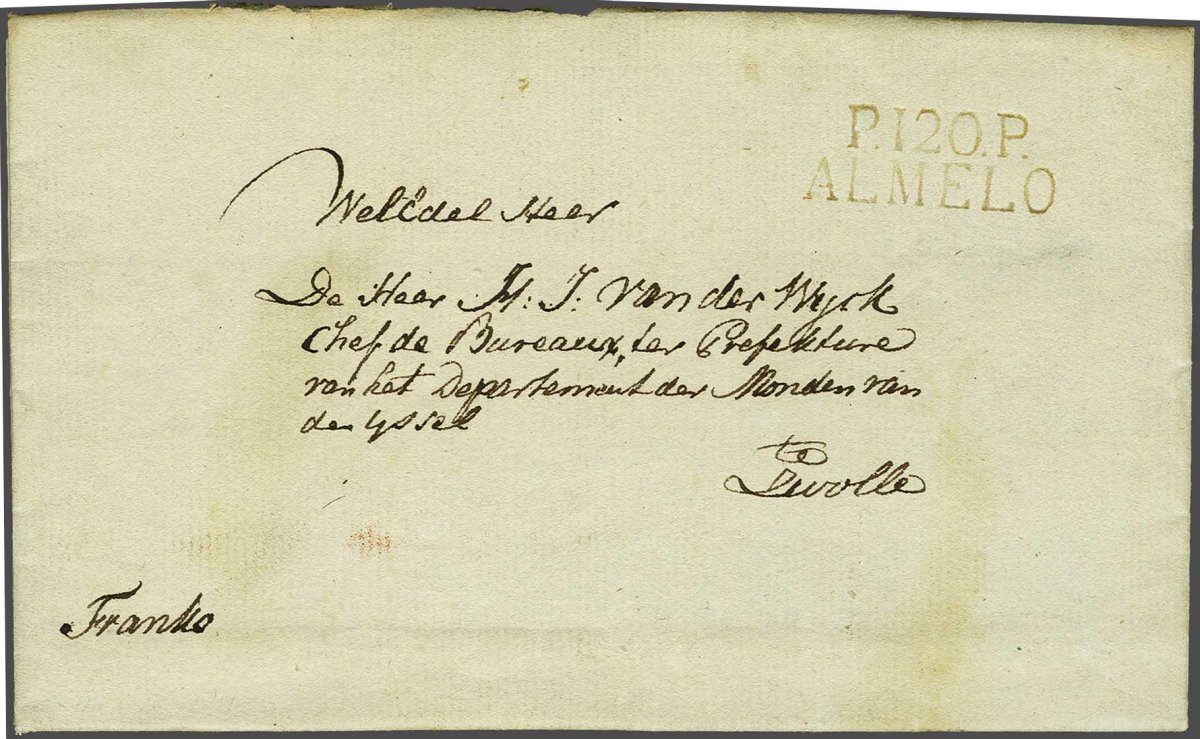 P.120.P.
ALMELO
WelEdel Heer
De Heer H: J. van der Wyck
Chef de Bureaux, ter Prefekture
van het Departement der Monden van
den Yssel
te
Zwolle
Franko